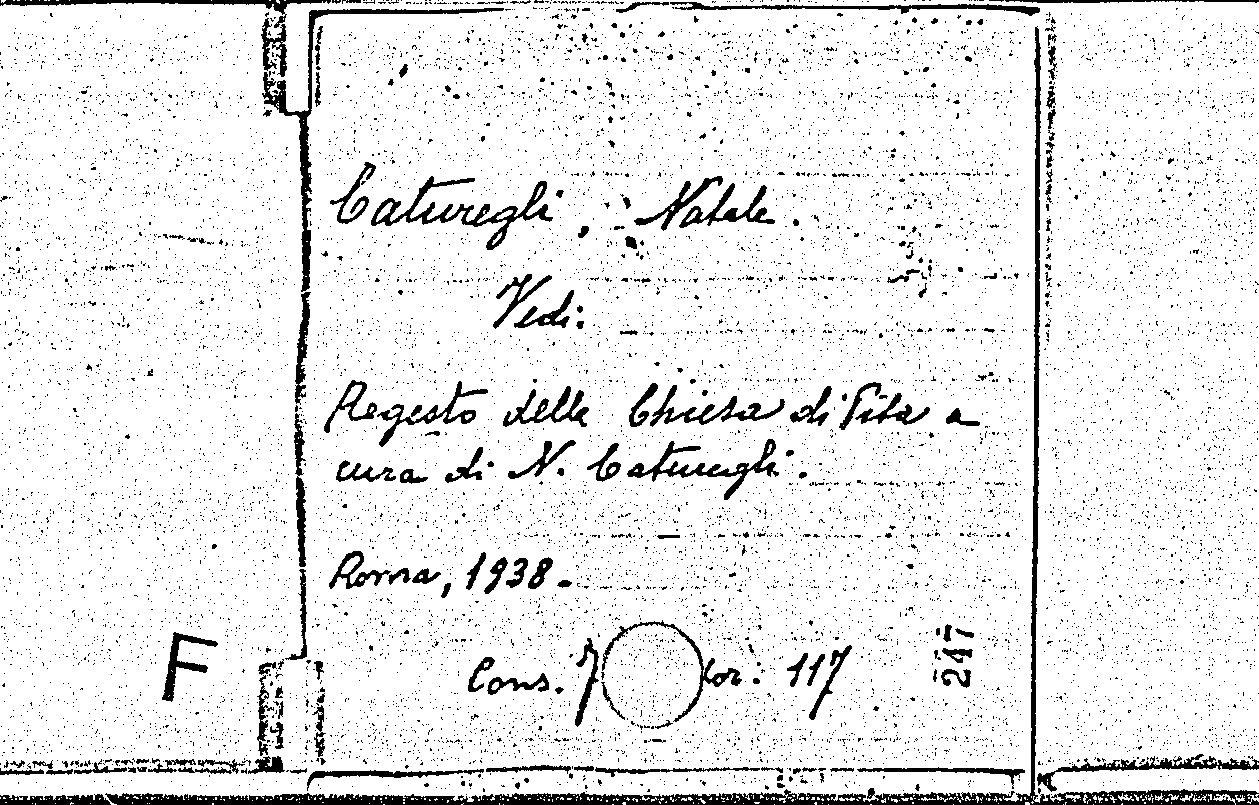 Caturegli, Natale.
Vedi:
Regesto della Chiesa di Pisa a
cura di N. Caturegli.
Roma, 1938.
Cons. 7 Cor: 117
247
F